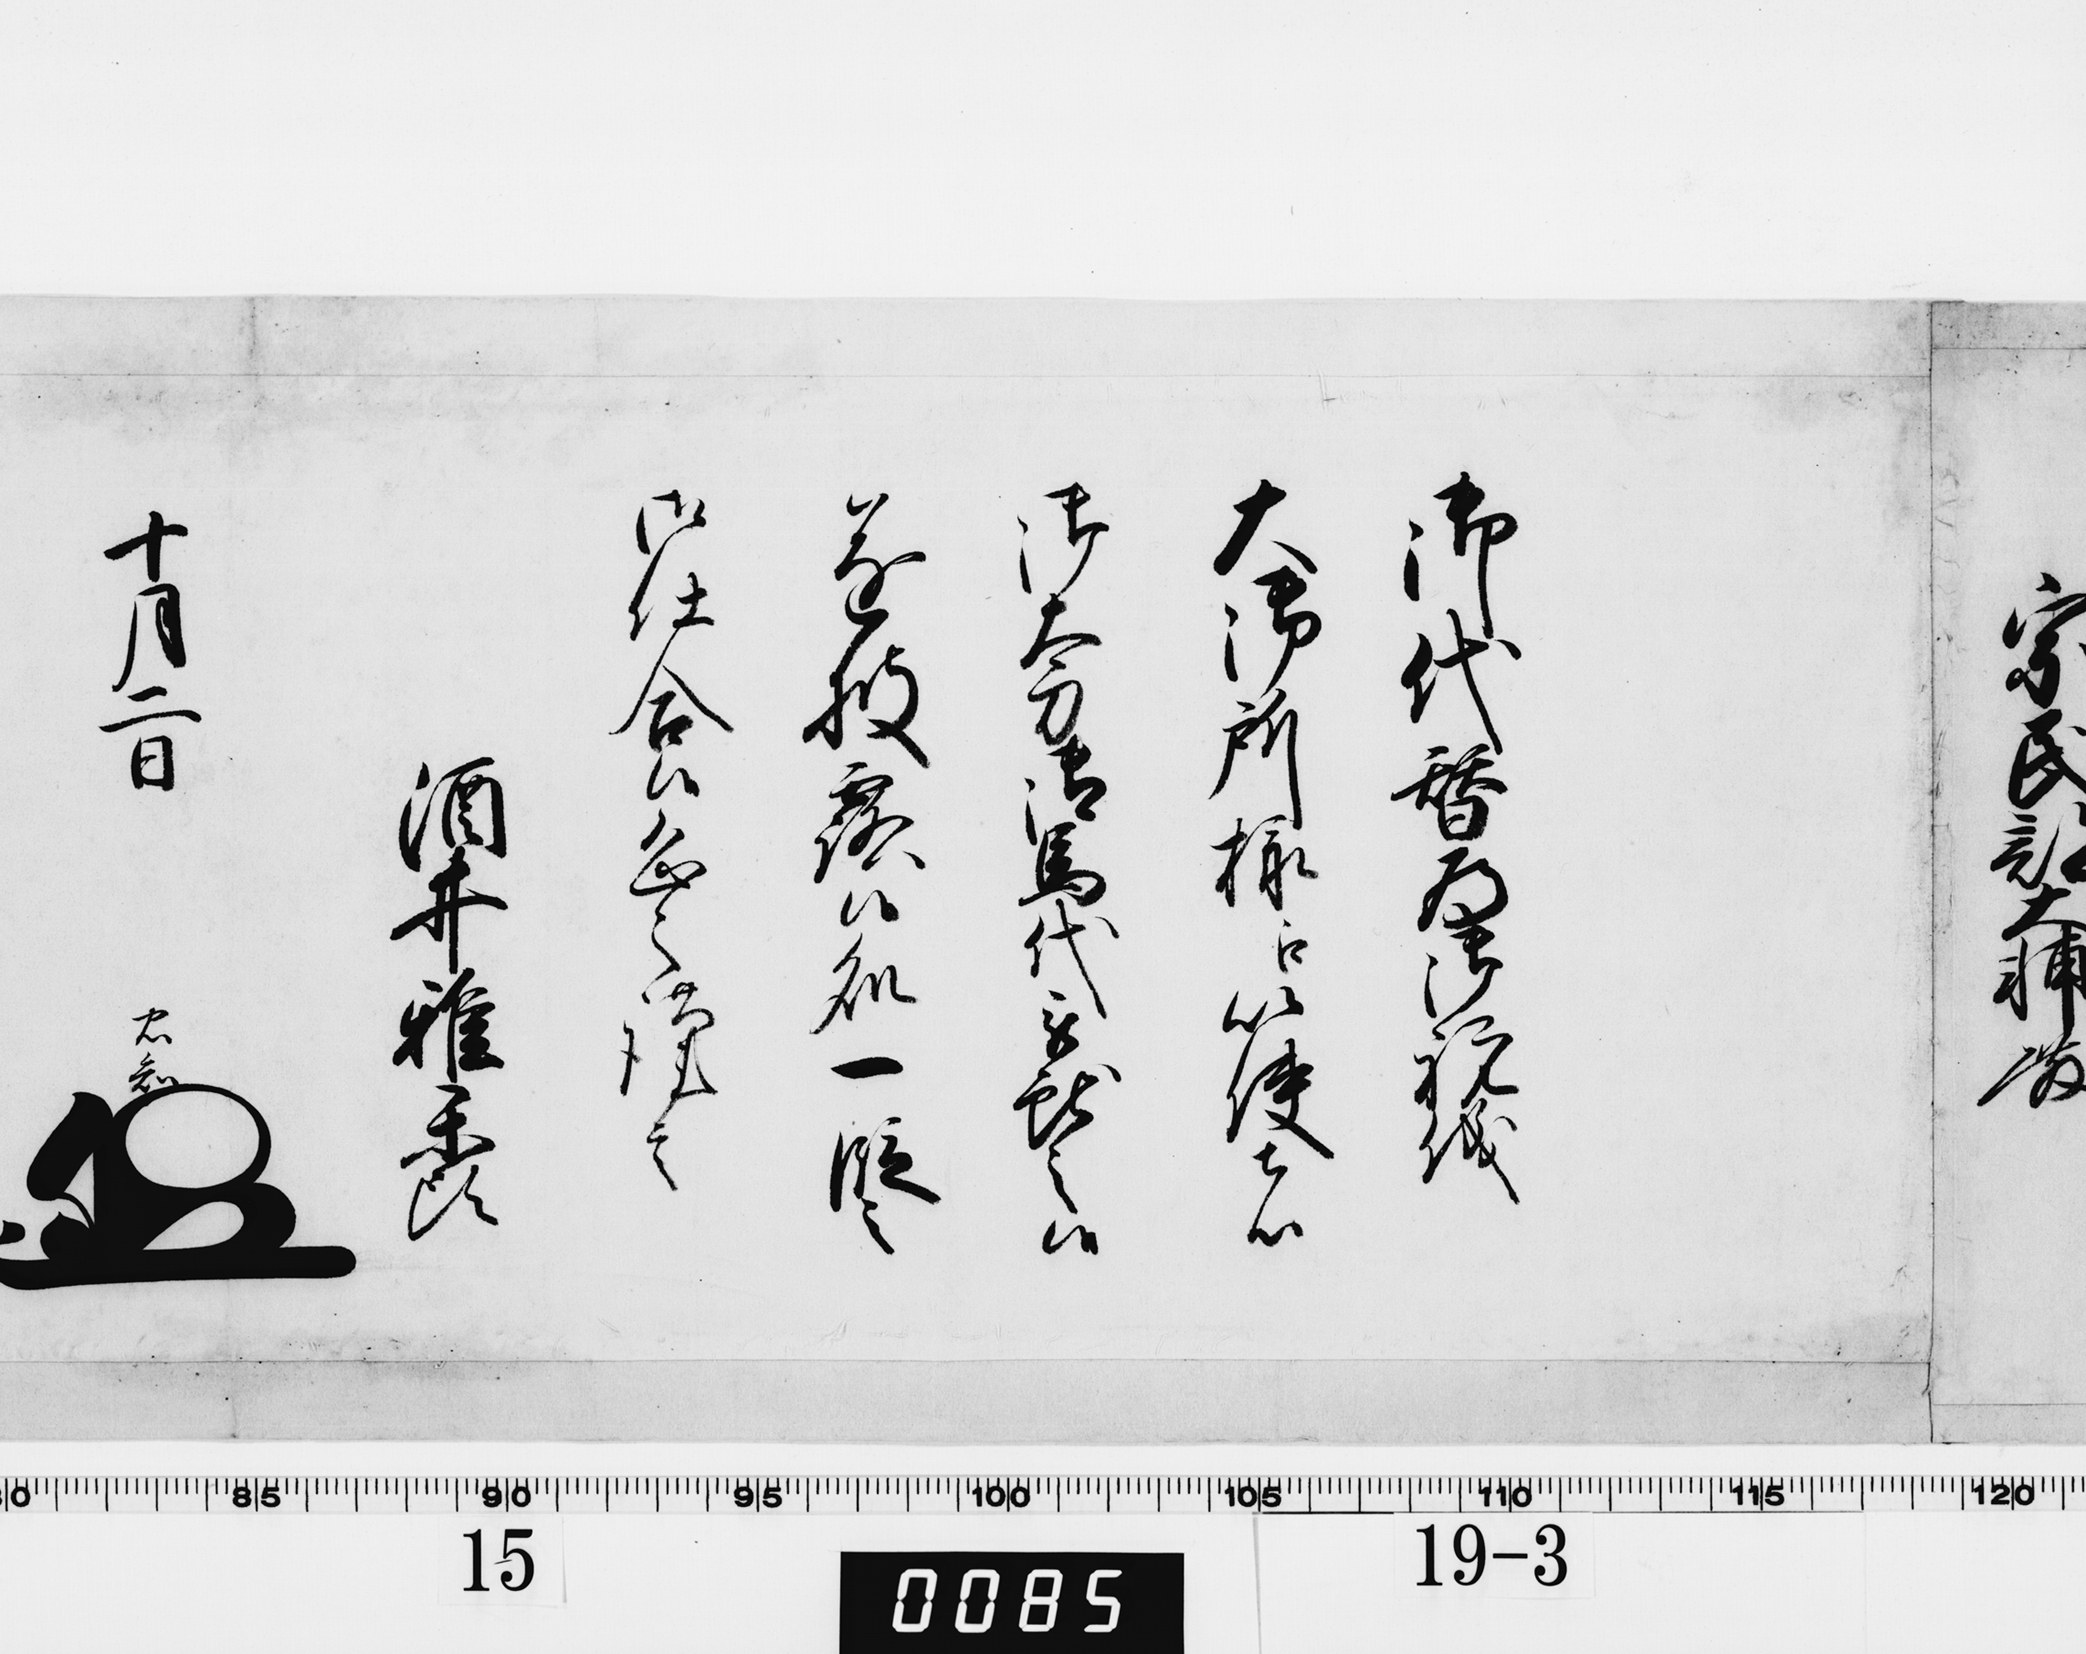 宗民部大輔殿
御代替為御祝儀
大御所様江以使者
御太刀御馬代被献之候
遂披露候処一段之
御仕合候恐々謹言
酒井雅楽頭
十月二日
忠知
80 85 90 95 100 105 110 115 120
15
0085
19-3